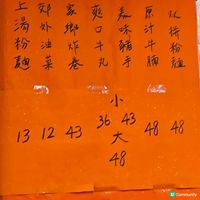 双拼粉麵
原汁牛腩
嘉味豬手
爽口牛丸
家鄉炸卷
郊外油菜
上湯粉麵
小
13 12 43 36 43 48 48
大
48
Community